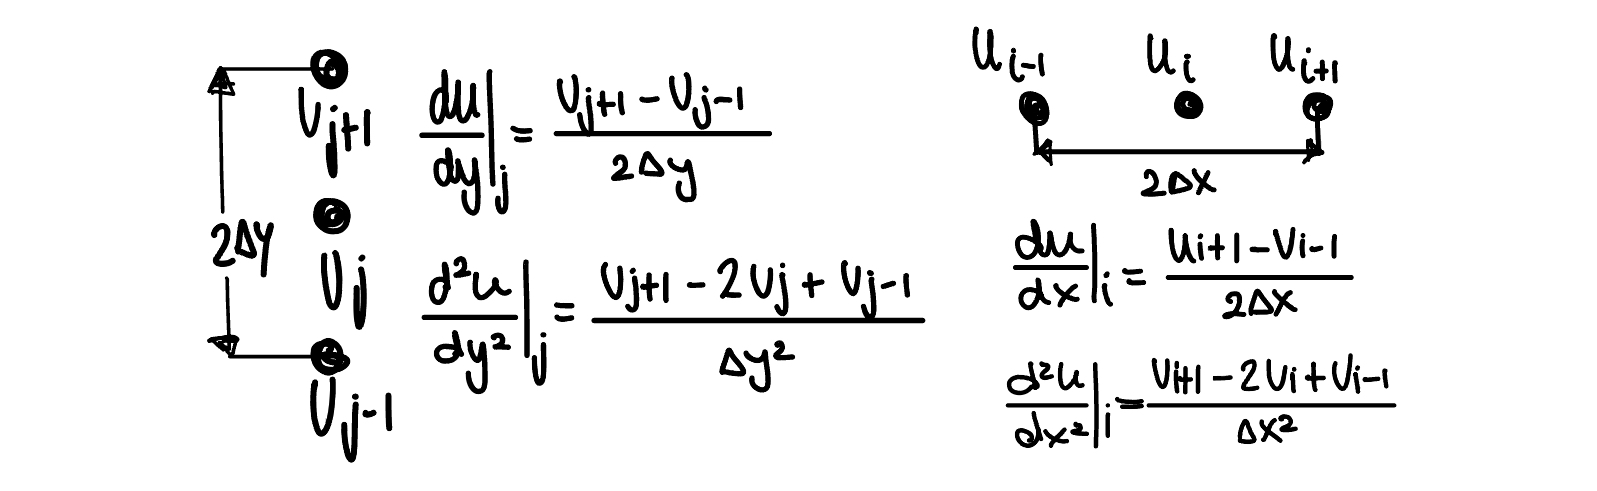 U_{j+1}
2Δy
U_j
U_{j-1}
\frac{du}{dy}|_j = \frac{U_{j+1} - U_{j-1}}{2Δy}
\frac{d²u}{dy²}|_j = \frac{U_{j+1} - 2U_j + U_{j-1}}{Δy²}
u_{i-1} u_i u_{i+1}
2Δx
\frac{du}{dx}|_i = \frac{u_{i+1} - U_{i-1}}{2Δx}
\frac{d²u}{dx²}|_i = \frac{U_{i+1} - 2U_i + U_{i-1}}{Δx²}